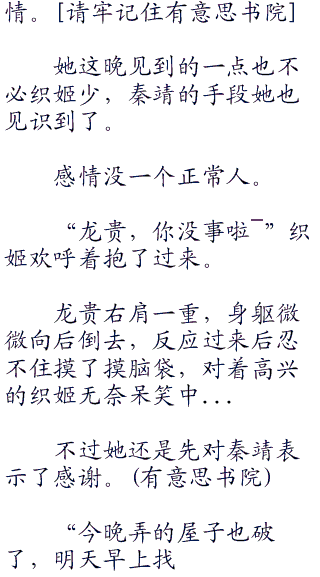 情。[请牢记住有意思书院]
她这晚见到的一点也不
必织姬少，秦靖的手段她也
见识到了。
感情没一个正常人。
“龙贵，你没事啦¯”织
姬欢呼着抱了过来。
龙贵右肩一重，身躯微
微向后倒去，反应过来后忍
不住摸了摸脑袋，对着高兴
的织姬无奈呆笑中...
不过她还是先对秦靖表
示了感谢。(有意思书院)
“今晚弄的屋子也破
了，明天早上找